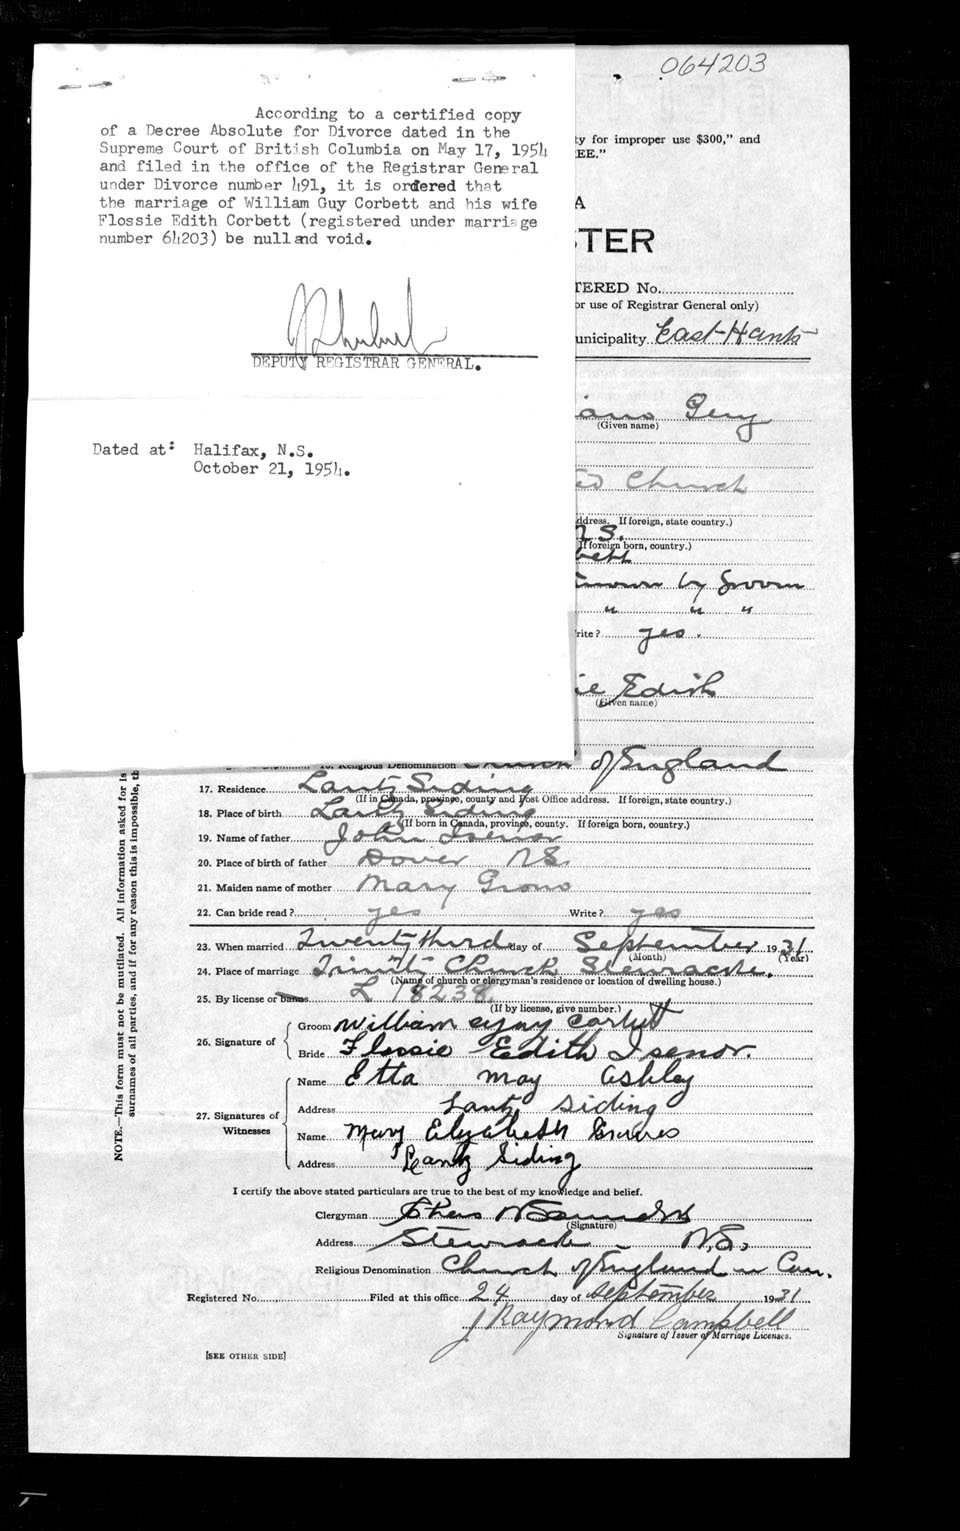 064203
According to a certified copy
of a Decree Absolute for Divorce dated in the
Supreme Court of British Columbia on May 17, 1954
and filed in the office of the Registrar General
under Divorce number 491, it is ordered that
the marriage of William Guy Corbett and his wife
Flossie Edith Corbett (registered under marriage
number 64203) be null and void.
DEPUTY REGISTRAR GENERAL.
Dated at: Halifax, N.S.
October 21, 1954.
ty for improper use $300," and
EE."
A
STER
TERED No.
or use of Registrar General only)
unicipality East-Hants
(Given name)
Church
ddress. If foreign, state country.)
N.S.
If foreign born, country.)
bett
known by groom
" " "
rite? yes.
ie Edith
(Given name)
Religious Denomination Church of England
17. Residence Lantz Siding
(If in Canada, province, county and Post Office address. If foreign, state country.)
18. Place of birth Lantz Siding
(If born in Canada, province, county. If foreign born, country.)
19. Name of father John Isenor
20. Place of birth of father Dover N.S.
21. Maiden name of mother Mary Grono
22. Can bride read? yes Write? yes
23. When married Twenty third day of September 1931
(Month) (Year)
24. Place of marriage Trinity Church Stewiacke.
(Name of church or clergyman's residence or location of dwelling house.)
25. By license or banns L 18238
(If by license, give number.)
26. Signature of
Groom William Guy Corbett
Bride Flossie Edith Isenor.
27. Signatures of Witnesses
Name Etta May Ashley
Address Lantz Siding
Name Mary Elizabeth
Address Lantz Siding
I certify the above stated particulars are true to the best of my knowledge and belief.
Clergyman
(Signature)
Address Stewiacke N.S.
Religious Denomination Church of England in Can.
Registered No. Filed at this office 24 day of September 1931
J Raymond Campbell
Signature of Issuer of Marriage Licenses.
[SEE OTHER SIDE]
NOTE.—This form must not be mutilated. All information asked for is
surnames of all parties, and if for any reason this is impossible, th